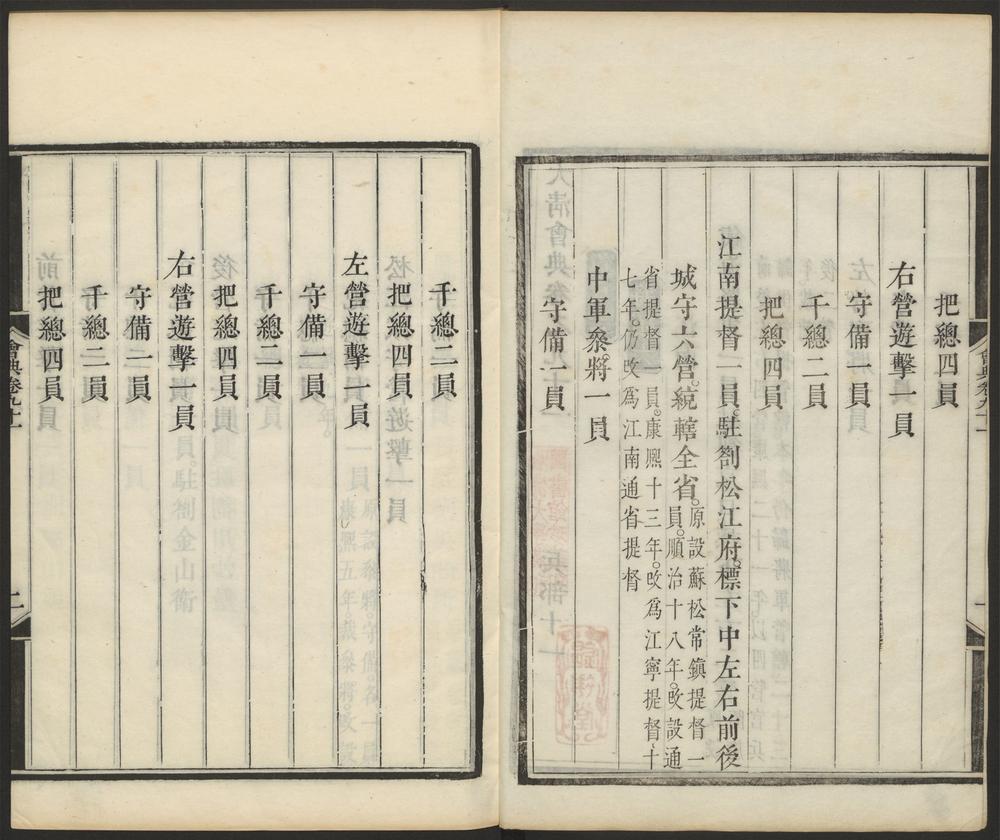 把總四員
右營遊擊一員
守備一員
千總二員
把總四員
江南提督一員。駐劄松江府。標下中左右前後
城守六營。統轄全省。原設蘇松常鎮提督一
員。順治十八年。改設通
省提督一員。康熙十三年。改爲江寧提督。十
七年。仍改爲江南通省提督
中軍叅將一員
守備一員
千總二員
把總四員
左營遊擊一員
守備一員
千總二員
把總四員
右營遊擊一員
守備一員
千總二員
把總四員
會典卷九十二
二